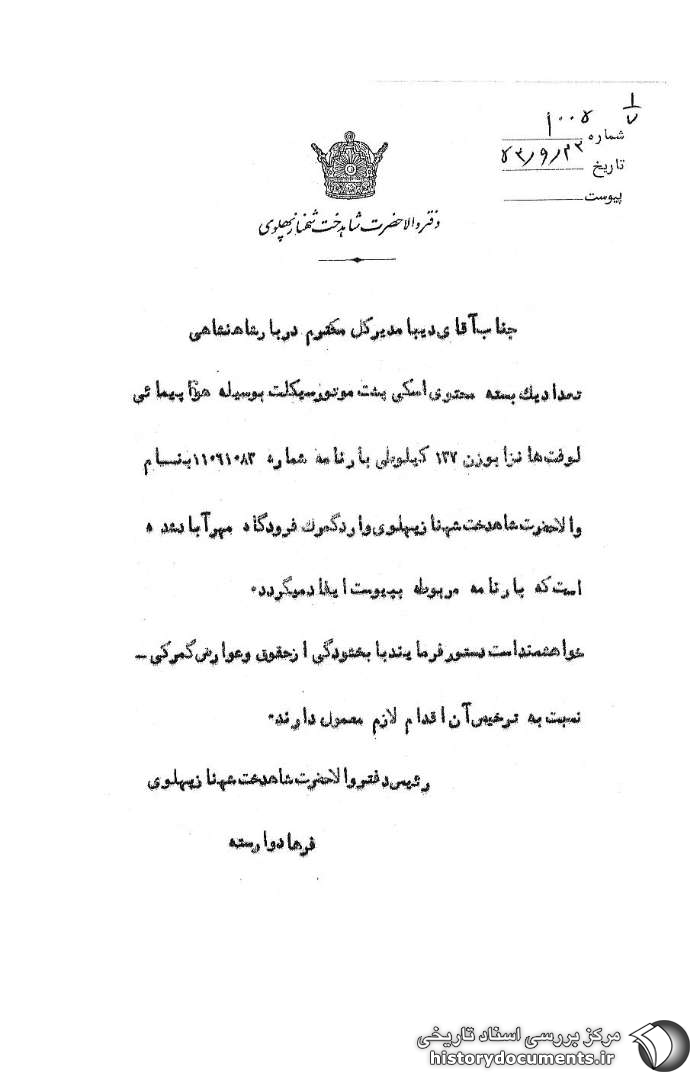 ۱/۷
شماره ۱۰۰۵
تاریخ ۵۳/۹/۲۳
پیوست
دفتر والاحضرت شاهدخت شهناز پهلوی
جناب آقای دیبا مدیرکل محترم دربار شاهنشاهی
تعداد یك بسته محتوی اسکی پشت موتورسیکلت بوسیله هواپیمائی
لوفت هانزا بوزن ۱۳۷ کیلو طی بارنامه شماره ۱۱۰۶۱۰۸۳ بنام
والاحضرت شاهدخت شهناز پهلوی وارد گمرك فرودگاه مهرآباد شده
است که بارنامه مربوطه بپیوست ایفاد میگردد۰
خواهشمند است دستور فرمایند با بخشودگی از حقوق و عوارض گمرکی ـ
نسبت به ترخیص آن اقدام لازم معمول دارند۰
رئیس دفتر والاحضرت شاهدخت شهناز پهلوی
فرهاد وارسته
مرکز بررسی اسناد تاریخی
historydocuments.ir